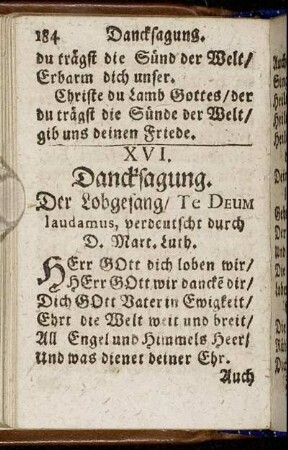 184 Dancksagung.
du trägst die Sünd der Welt/
Erbarm dich unser.
Christe du Lamb Gottes/der
du trägst die Sünde der Welt/
gib uns deinen Friede.
XVI.
Dancksagung.
Der Lobgesang/ Te DEUM
laudamus, verdeutscht durch
D. Mart. Luth.
HErr GOtt dich loben wir/
HErr GOtt wir danckē dir/
Dich GOtt Vater in Ewigkeit/
Ehrt die Welt weit und breit/
All Engel und Himmels Heer/
Und was dienet deiner Ehr.
Auch